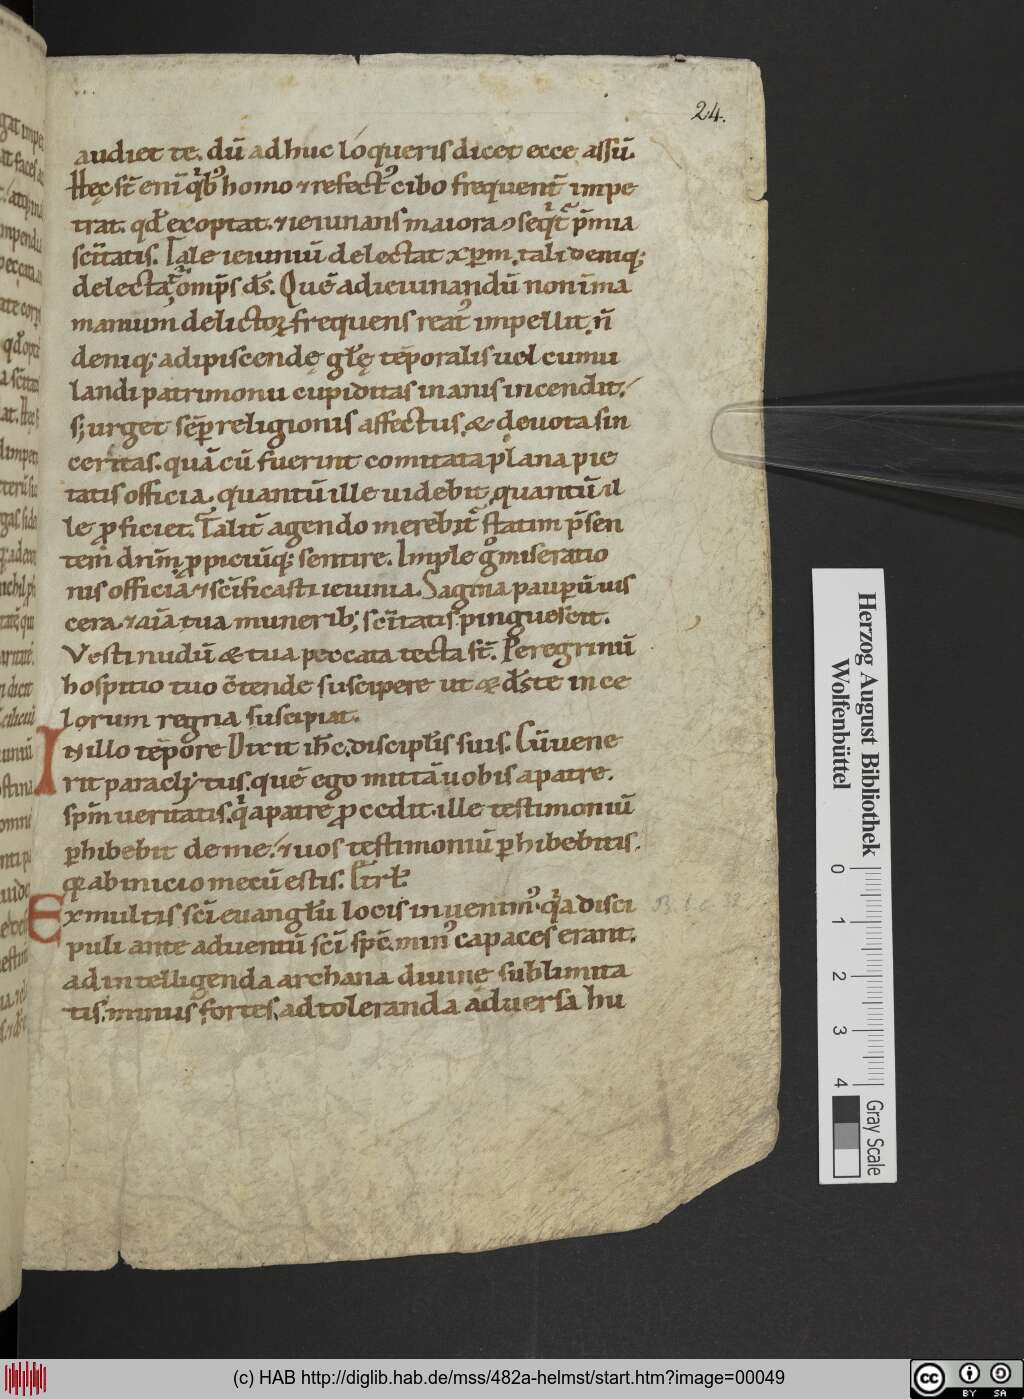 24.
audiet te. dũ adhuc loqueris dicet ecce assũ.
Hęc st̄ enĩ qͥbꝰ homo ⁊ refectꝰ cibo frequent̃ impe
trat. qđ exoptat. ⁊ ieiunans maiora ꝯseqͥt᷑ p̄mia
sc̄itatis. Tale ieiuniũ delectat xp̄m. tali deniqꝫ
delectat᷑ om̄ps d̄s. Quẽ ad ieiunandũ non ĩma
manium delictoꝝ frequens reatꝰ impellit. n̄
deniqꝫ adipiscendę głę tẽporalis uel cumu
landi patrimonii cupiditas inanis incendit.
sꝫ urget sẽꝑ religionis affectus. & deuota sin
ceritas. quã cũ fuerint comitata plana pie
tatis officia. quantũ ille uidebit, quantũ il
le ꝓficiet. Talit̃ agendo merebit᷑ statim p̄sen
tem drm̃ ꝓpiciũqꝫ sentire. Imple gͦ miseratio
nis officia. ⁊ sc̄ificasti ieiunia. Sagina pauꝑũ uis
cera. ⁊ aĩa tua muneribꝫ sc̄itatis pinguescit.
Vesti nudũ & tua peccata tecta st̄. Peregrinũ
hospitio tuo cõtende suscipere ut & d̄s te in ce
lorum regna suscipiat.
In illo tẽpore Dixit ih̄c. discipłis suis. Cũ uene
rit paraclytus. quẽ ego mittã uobis a patre.
sp̄m ueritatis. qͥ a patre ꝓcedit. ille testimoniũ
ꝑhibebit de me. ⁊ uos testimoniũ ꝑhibebitis.
qꝛ ab inicio mecũ estis.
Ex multis sc̄i euangłii locis inuenimꝰ. qͥa disci
puli ante aduentũ sc̄i sp̄c. minꝰ capaces erant.
ad intelligenda archana diuinę sublimita
tis. minus fortes. ad toleranda aduersa hu
Herzog August Bibliothek
Wolfenbüttel
0
1
2
3
4
Gray Scale
(c) HAB http://diglib.hab.de/mss/482a-helmst/start.htm?image=00049
cc
BY SA